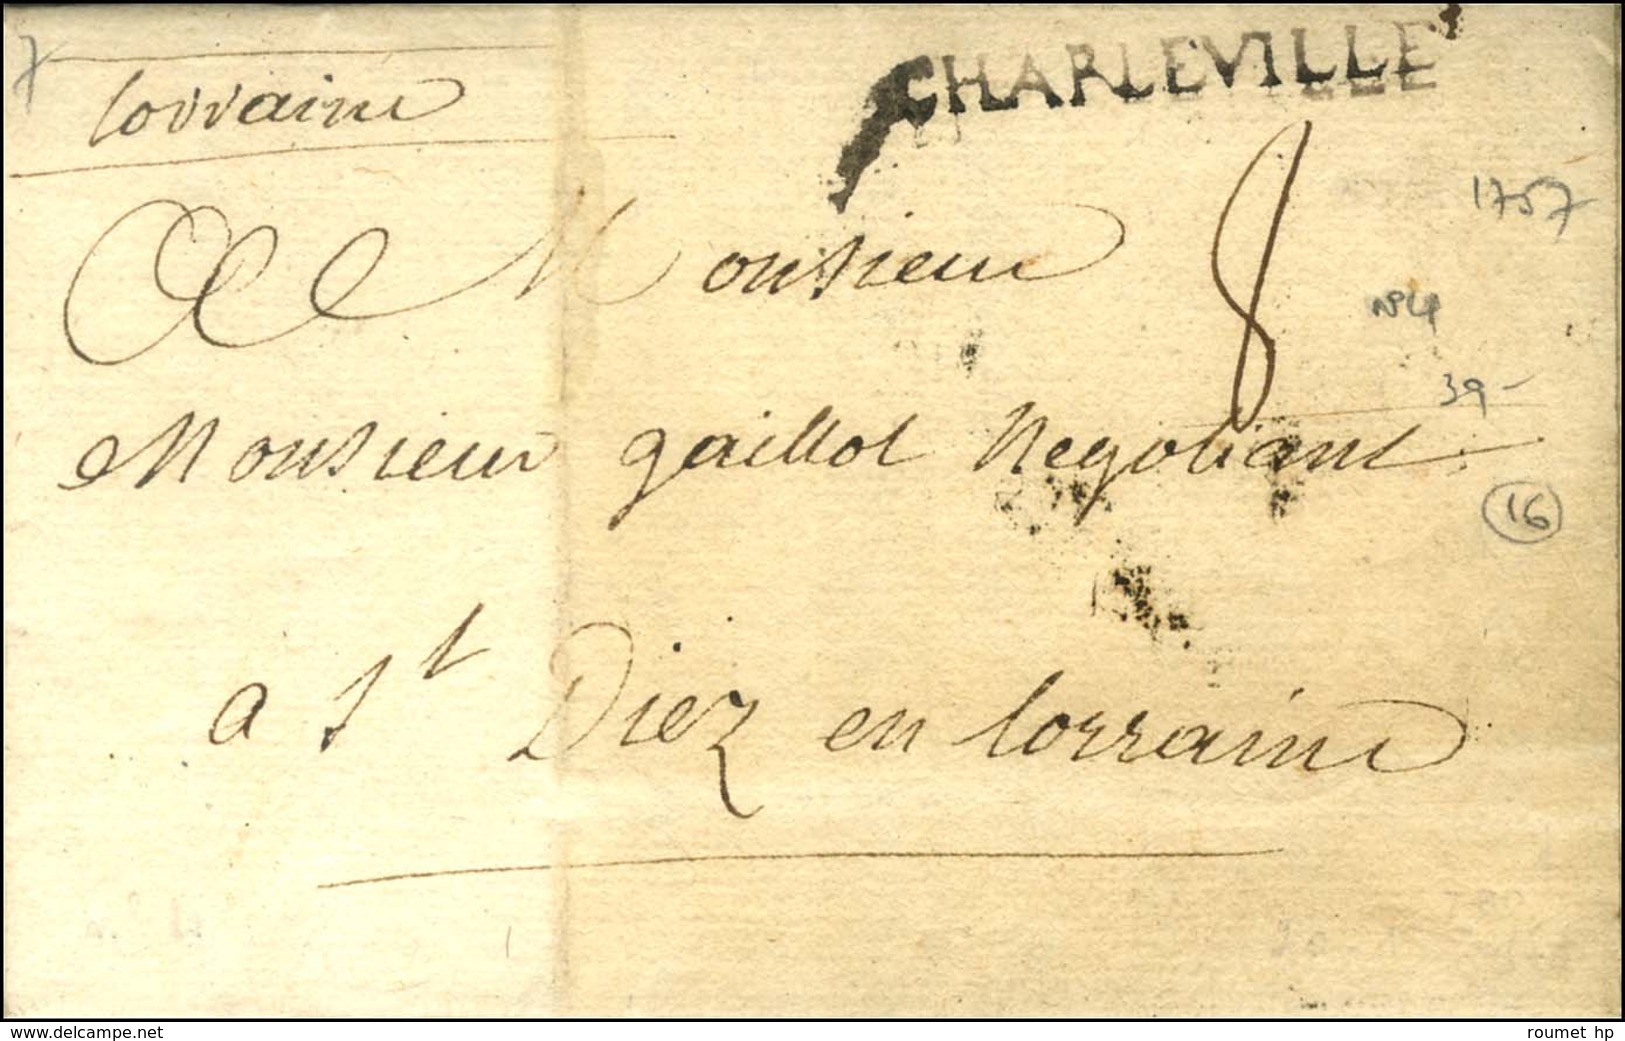 7
lorraine
CHARLEVILLE
8
1757
Monsieur
N°4
39-
Monsieur gaillot Negotiant
16
a St Diez en lorraine
www.delcampe.net
roumet hp